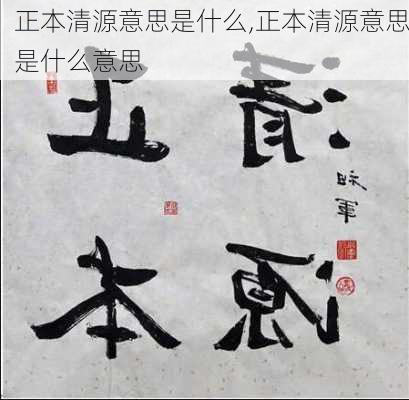 正本清源意思是什么,正本清源意思
是什么意思
正本
清源